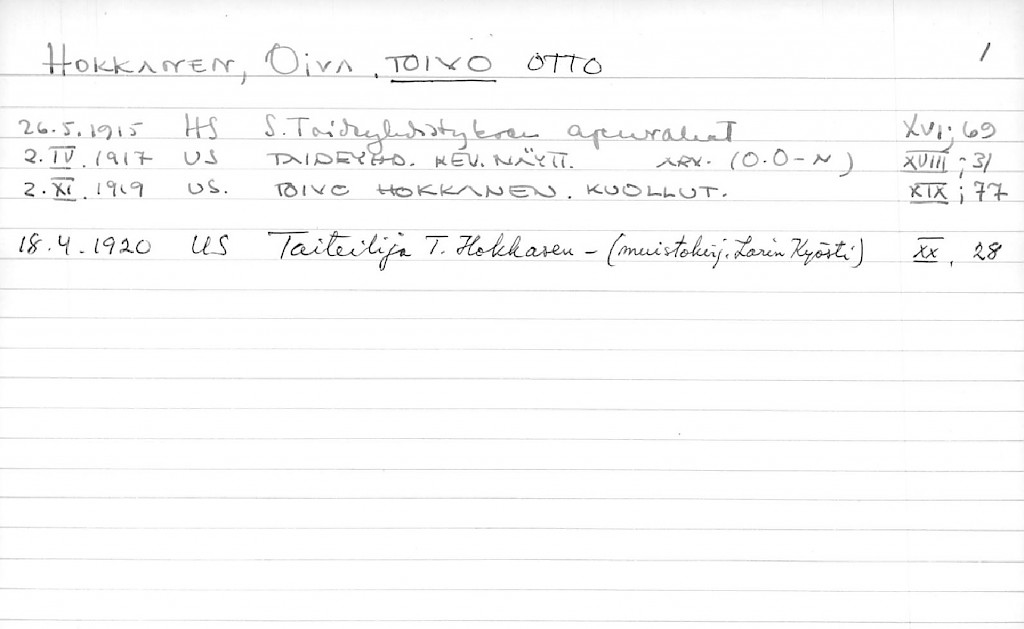 HOKKANEN, OIVA, TOIVO OTTO 1
26.5.1915 HS S. Taideyhdistyksen apurahat XVI; 69
2.IV.1917 US TAIDEYHD. KEV. NÄYTT. ARV. (O.O-N) XVIII; 31
2.XI.1919 US. TOIVO HOKKANEN. KUOLLUT. XIX; 77
18.4.1920 US Taiteilija T. Hokkasen - (muistokirj. Larin Kyösti) XX, 28